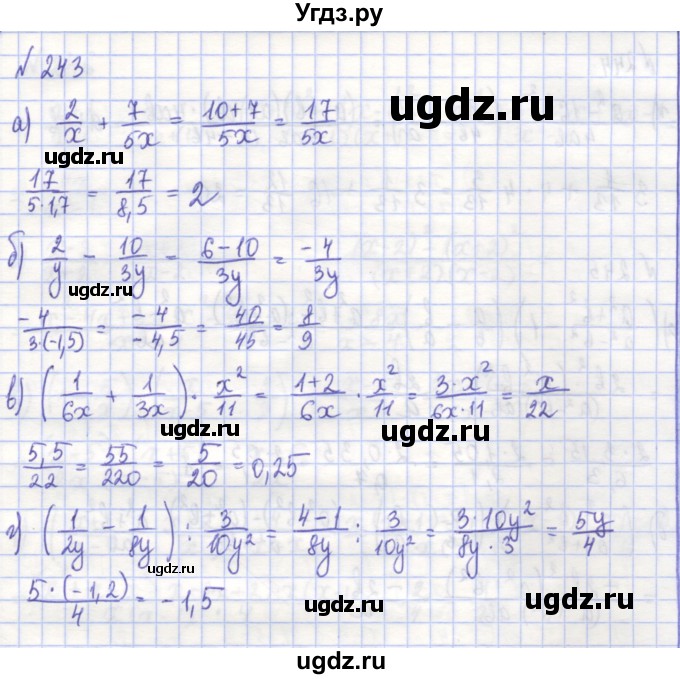 Угдз.ру
N 243
ugdz.ru
а) 2/x + 7/5x = (10+7)/5x = 17/5x
ugdz.ru
ugdz.ru
17/(5·1,7) = 17/8,5 = 2
б) 2/y - 10/3y = (6-10)/3y = -4/3y
ugdz.ru
ugdz.ru
-4/(3·(-1,5)) = -4/-4,5 = 40/45 = 8/9
ugdz.ru
в) (1/6x + 1/3x) · x²/11 = (1+2)/6x · x²/11 = 3·x²/6x·11 = x/22
ugdz.ru
ugdz.ru
5,5/22 = 55/220 = 5/20 = 0,25
г) (1/2y - 1/8y) : 3/10y² = (4-1)/8y : 3/10y² = 3·10y²/8y·3 = 5y/4
ugdz.ru
ugdz.ru
5·(-1,2)/4 = -1,5
ugdz.ru
ugdz.ru